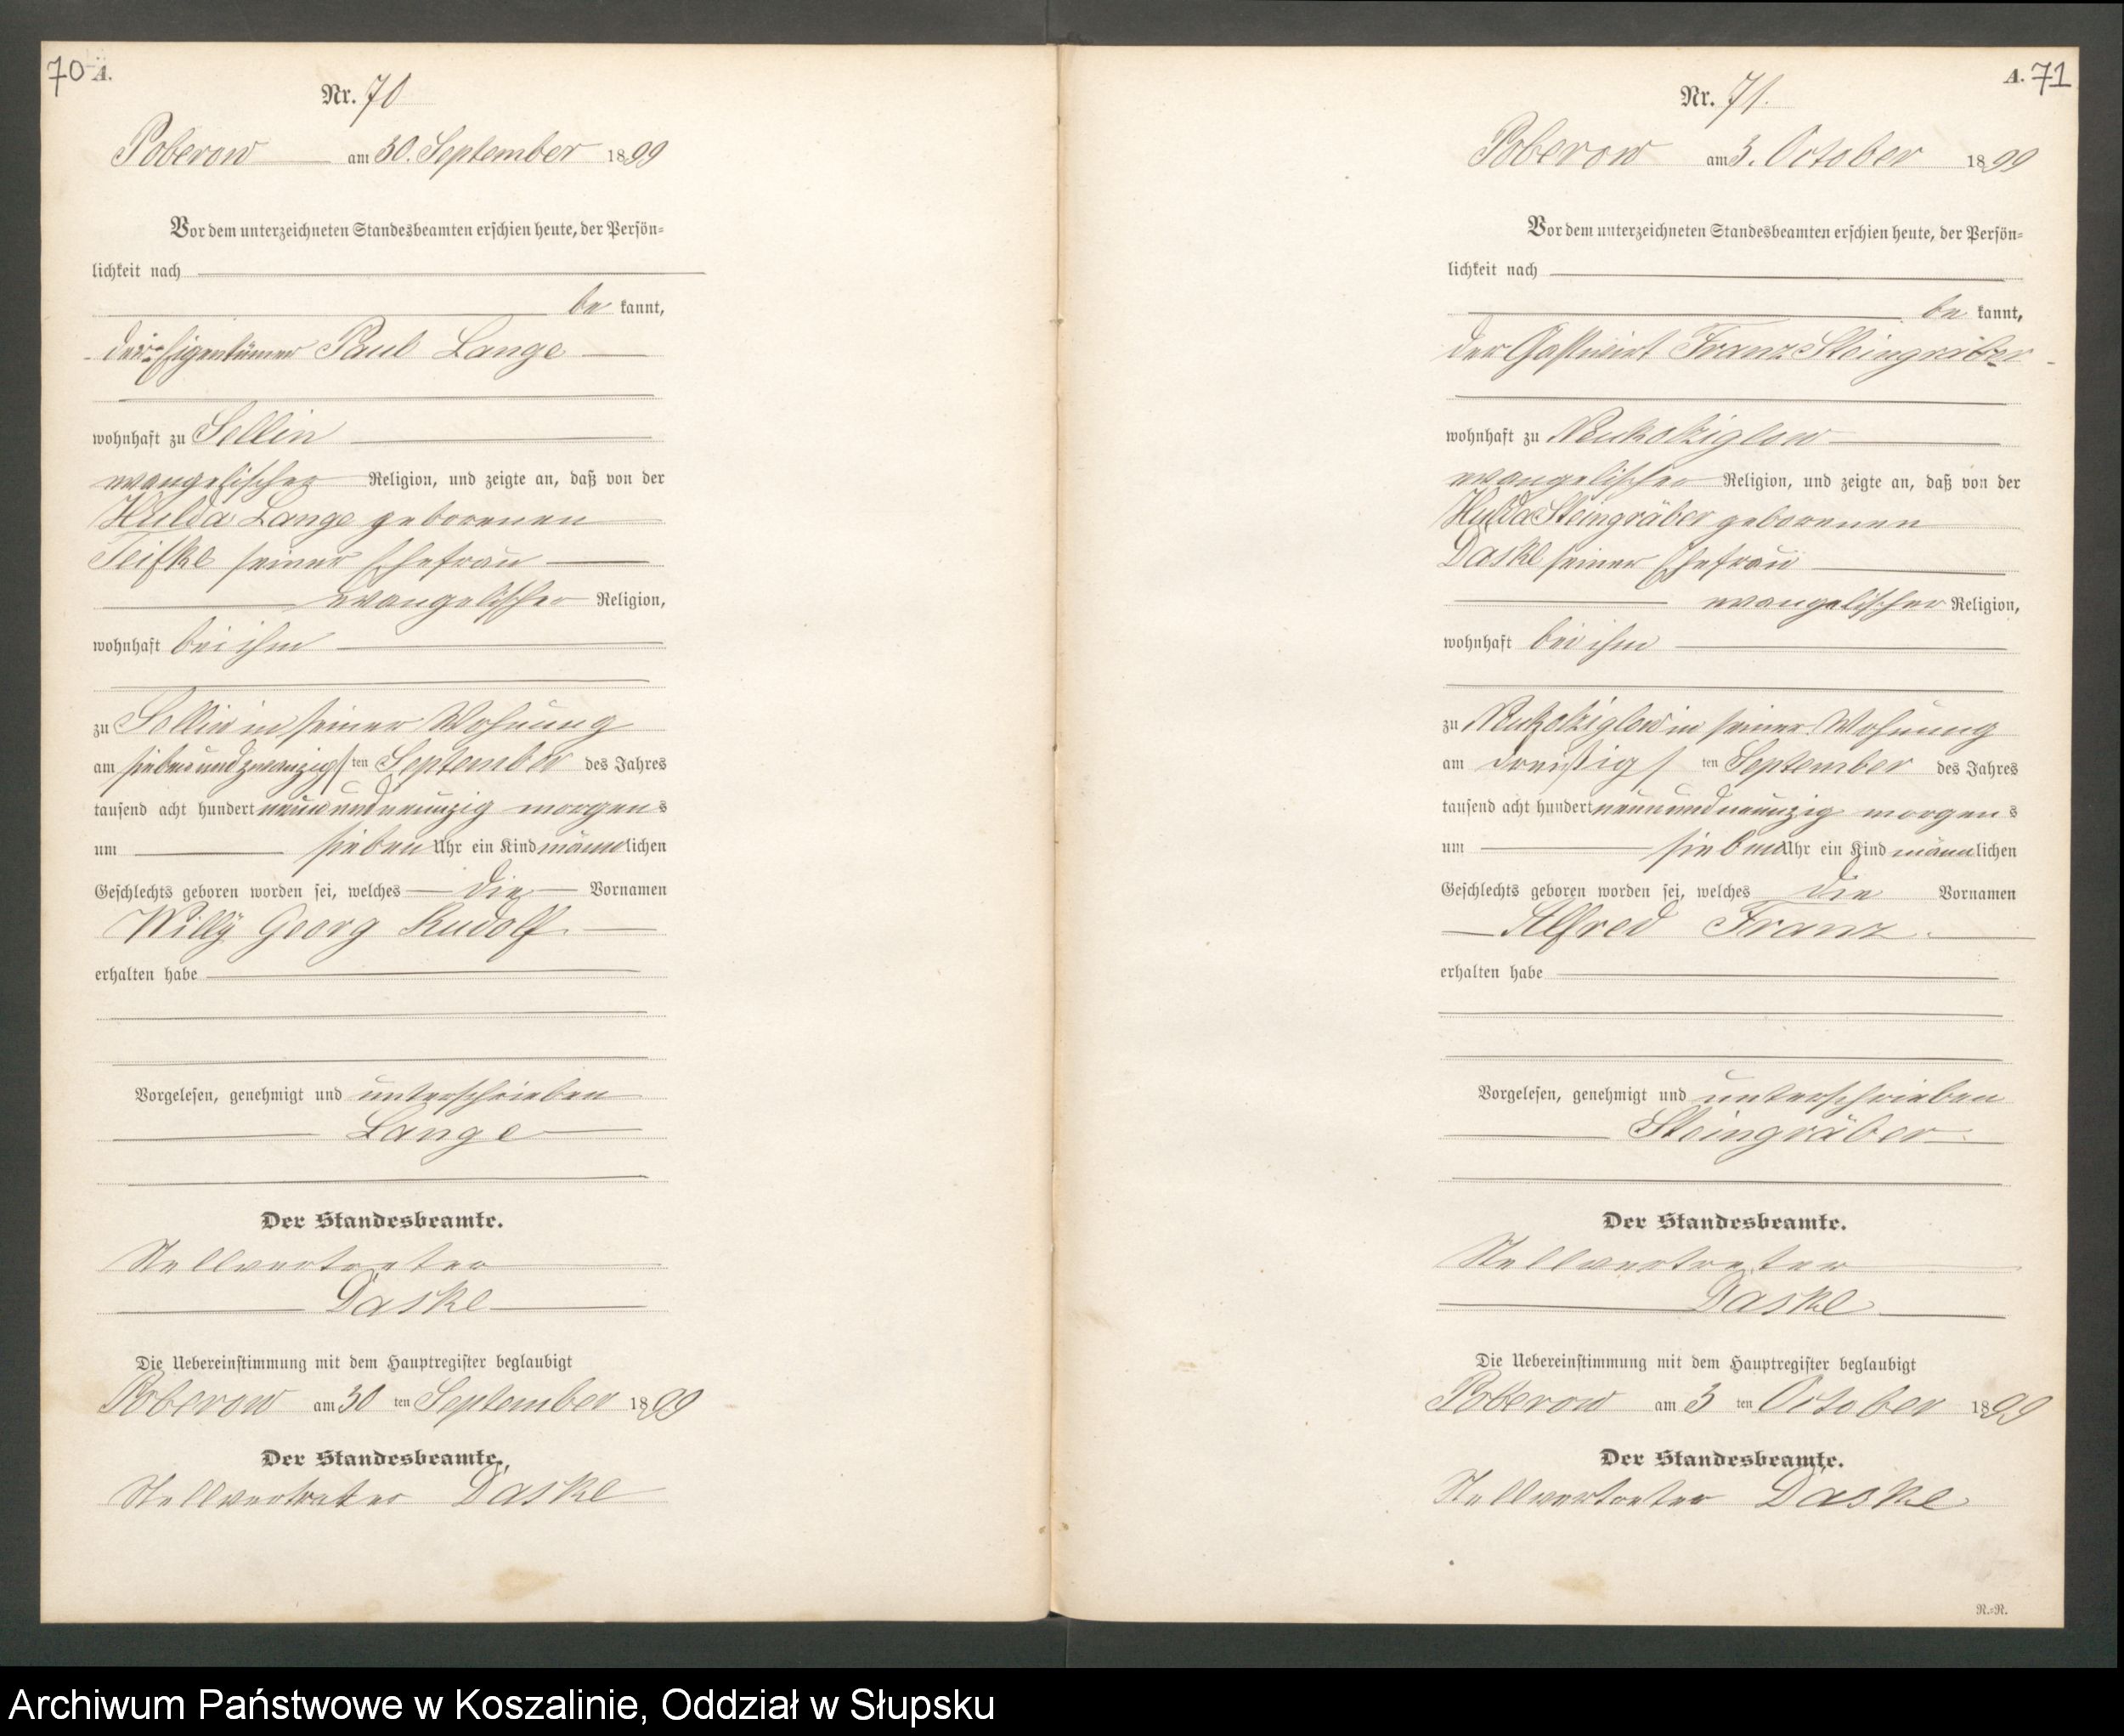 70 A.
Nr. 70
Poberow am 30. September 1899
Vor dem unterzeichneten Standesbeamten erschien heute, der Persön=
lichkeit nach
be kannt,
der Eigentümer Paul Lange
wohnhaft zu Sellin
evangelischer Religion, und zeigte an, daß von der
Hulda Lange geborenen
Teifke seiner Ehefrau
evangelischer Religion,
wohnhaft bei ihm
zu Sellin in seiner Wohnung
am siebenundzwanzigsten September des Jahres
tausend acht hundert neunundneunzig morgens
um sieben Uhr ein Kind männlichen
Geschlechts geboren worden sei, welches die Vornamen
Willy Georg Rudolf.
erhalten habe
Vorgelesen, genehmigt und unterschrieben
Lange
Der Standesbeamte.
Stellvertreter
Daske
Die Uebereinstimmung mit dem Hauptregister beglaubigt
Poberow am 30 ten September 1899
Der Standesbeamte.
Stellvertreter Daske
A. 71
Nr. 71.
Poberow am 3. October 1899
Vor dem unterzeichneten Standesbeamten erschien heute, der Persön=
lichkeit nach
be kannt,
der Gastwirt Franz Steingräber
wohnhaft zu Neukolziglow
evangelischer Religion, und zeigte an, daß von der
Hulda Steingräber geborenen
Daske seiner Ehefrau
evangelischer Religion,
wohnhaft bei ihm
zu Neukolziglow in seiner Wohnung
am dreißigsten September des Jahres
tausend acht hundert neunundneunzig morgens
um sieben Uhr ein Kind männlichen
Geschlechts geboren worden sei, welches die Vornamen
Alfred Franz.
erhalten habe
Vorgelesen, genehmigt und unterschrieben
Steingräber
Der Standesbeamte.
Stellvertreter
Daske
Die Uebereinstimmung mit dem Hauptregister beglaubigt
Poberow am 3 ten October 1899
Der Standesbeamte.
Stellvertreter Daske
R.=R.
Archiwum Państwowe w Koszalinie, Oddział w Słupsku